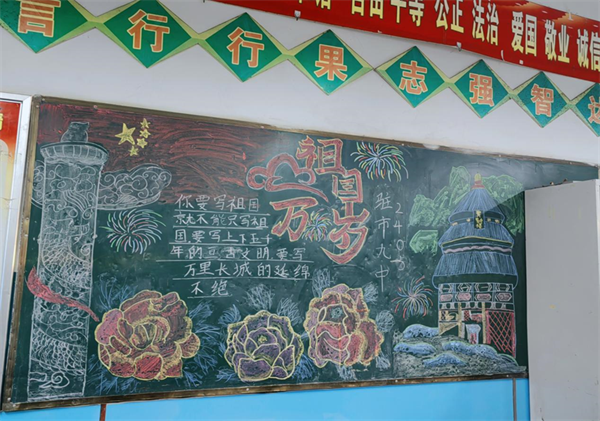 平等 公正 法治 爱国 敬业 诚信
言行行果志强智达
祖国万岁
你要写祖国
就不能只写祖
国要写上下五千
年的亘古文明要写
万里长城的延绵
不绝
驻市九中